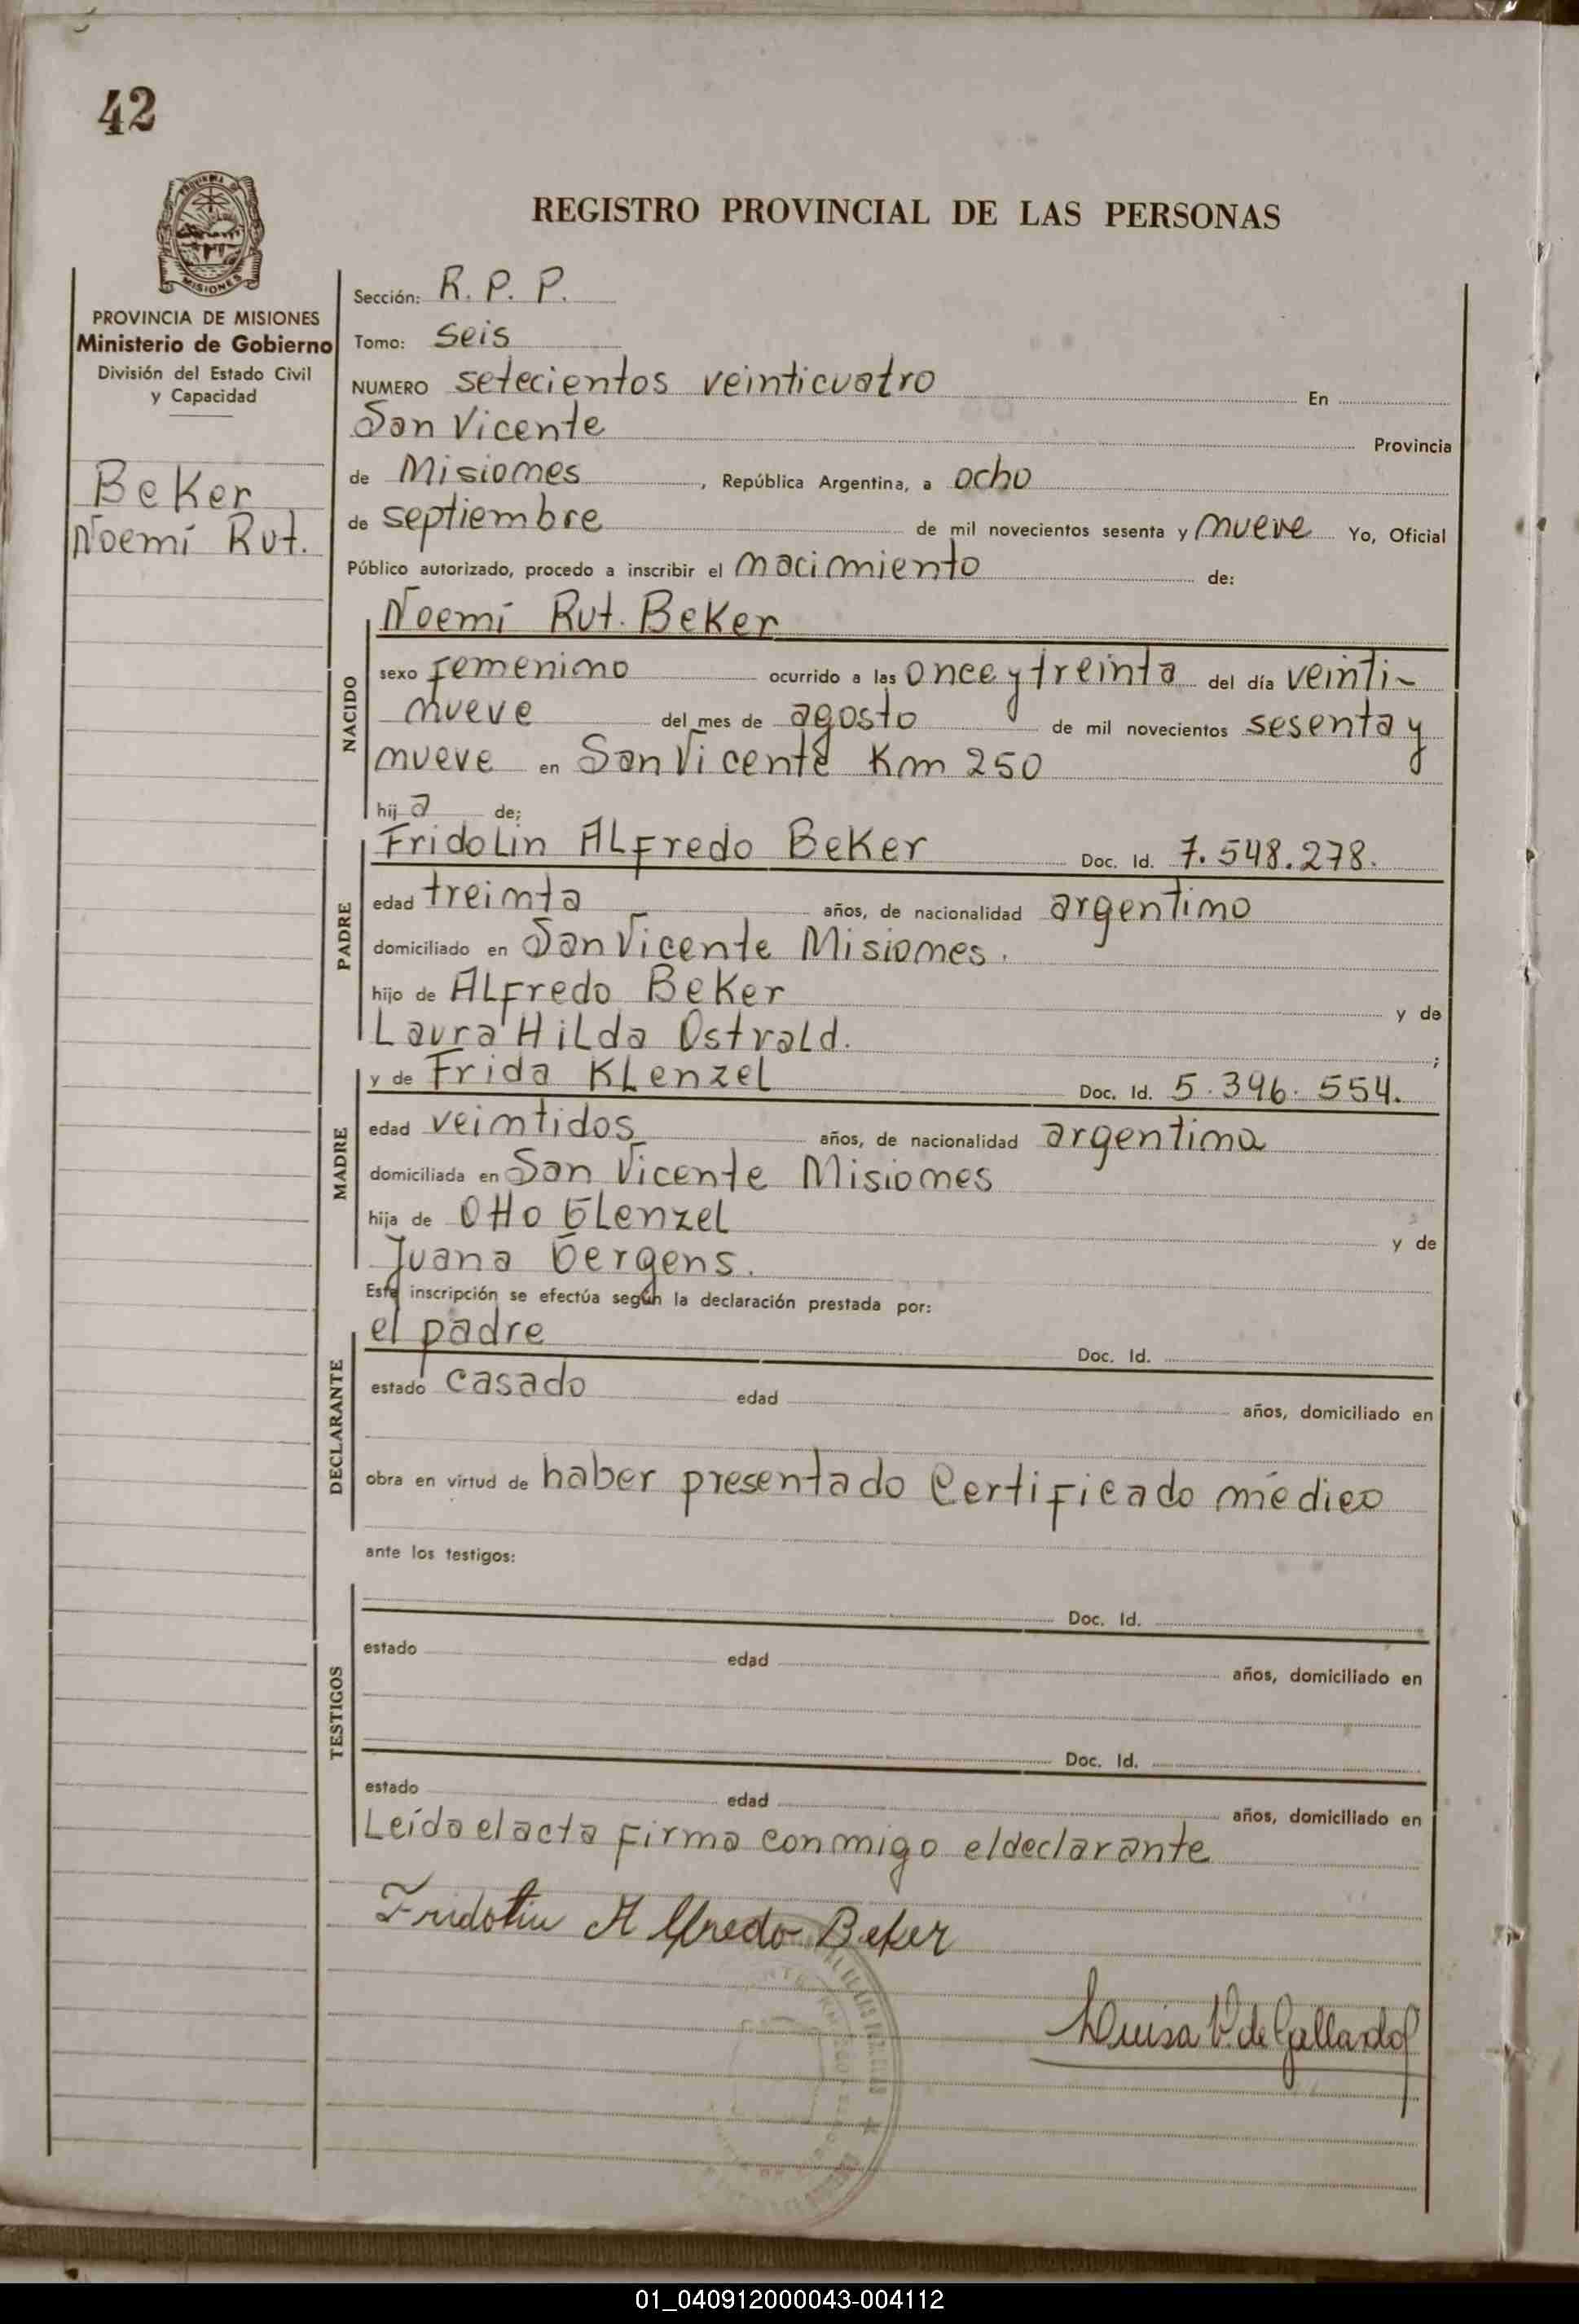 42
PROVINCIA DE MISIONES
Ministerio de Gobierno
División del Estado Civil
y Capacidad
Beker
Noemí Rut.
REGISTRO PROVINCIAL DE LAS PERSONAS
Sección: R. P. P.
Tomo: seis
NUMERO setecientos veinticuatro En
San Vicente Provincia
de Misiones, República Argentina, a ocho
de septiembre de mil novecientos sesenta y nueve Yo, Oficial
Público autorizado, procedo a inscribir el nacimiento de:
NACIDO
Noemí Rut. Beker
sexo femenino ocurrido a las once y treinta del día veinti-
nueve del mes de agosto de mil novecientos sesenta y
nueve en San Vicente Km 250
hija de;
PADRE
Fridolin Alfredo Beker Doc. Id. 7.548.278.
edad treinta años, de nacionalidad argentino
domiciliado en San Vicente Misiones.
hijo de Alfredo Beker y de
Laura Hilda Ostvald. ;
MADRE
y de Frida Klenzel Doc. Id. 5.396.554.
edad veintidos años, de nacionalidad argentina
domiciliada en San Vicente Misiones
hija de Otto Glenzel y de
Juana Gergens.
Esta inscripción se efectúa según la declaración prestada por:
DECLARANTE
el padre Doc. Id.
estado casado edad años, domiciliado en
obra en virtud de haber presentado Certificado médico
ante los testigos:
TESTIGOS
Doc. Id.
estado edad años, domiciliado en
Doc. Id.
estado edad años, domiciliado en
Leída el acta firma conmigo el declarante
Fridolin Alfredo Beker
Luisa V. de Gallardo
01_040912000043-004112